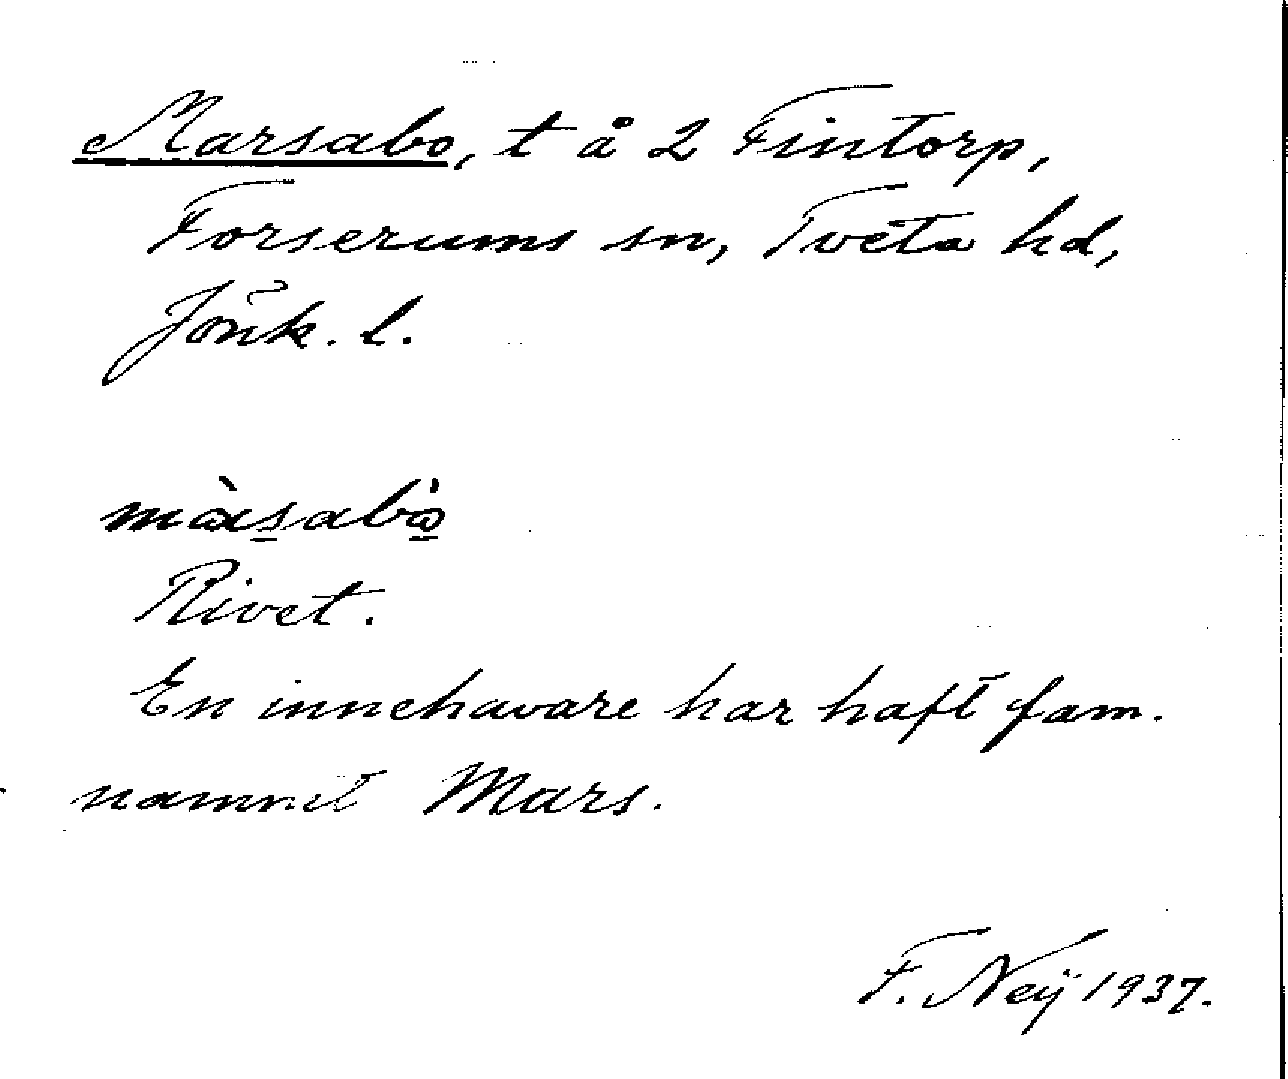 Marsabo, t å 2 Fintorp,
Forserums sn, Tveta hd,
Jönk. l.
Rivet.
En innehavare har haft fam.
namnet Mars.
F. Neÿ 1937.